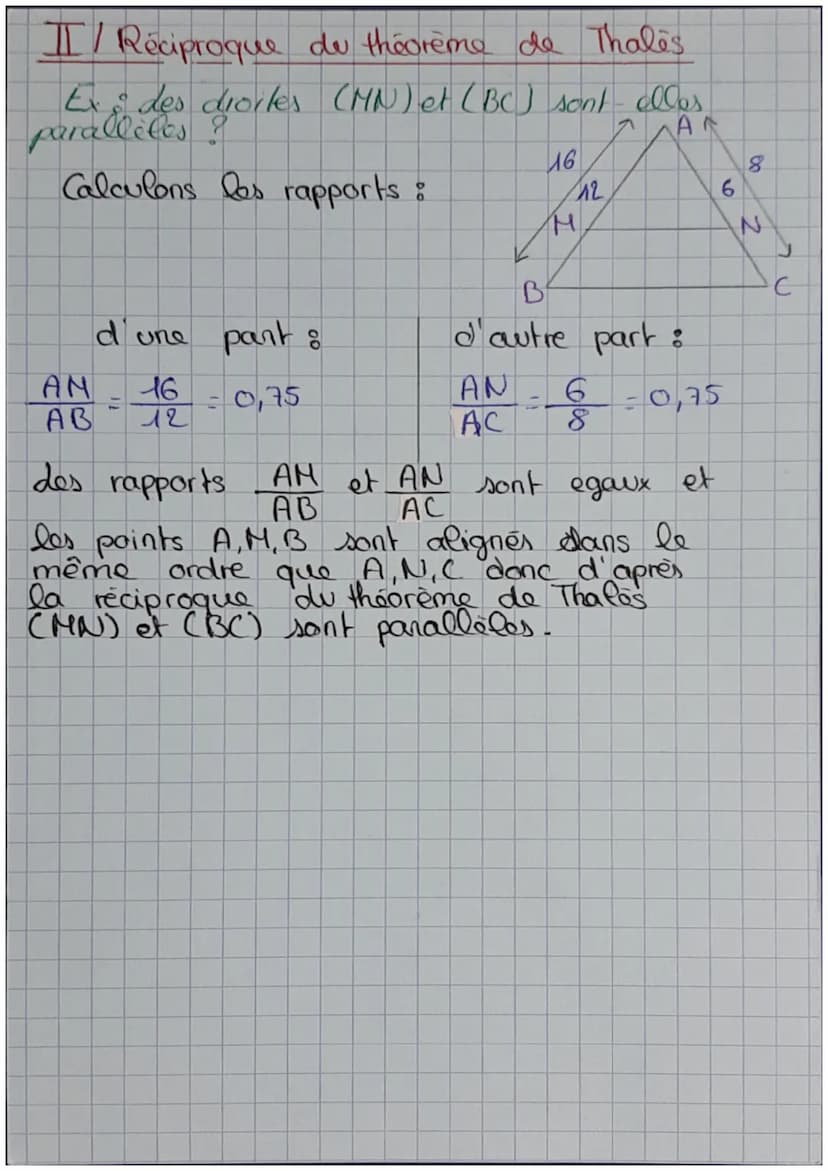 II / Réciproque du théorème de Thalès
Ex : des droites (MN) et (BC) sont-elles
parallèles ?
A
16
8
Calculons les rapports :
12
6
M
N
B
C
d'une part :
d'autre part :
AM/AB = 16/12 = 0,75
AN/AC = 6/8 = 0,75
des rapports AM/AB et AN/AC sont egaux et
les points A, M, B sont alignés dans le
même ordre que A, N, C donc d'après
la réciproque du théorème de Thalès
(MN) et (BC) sont parallèles.